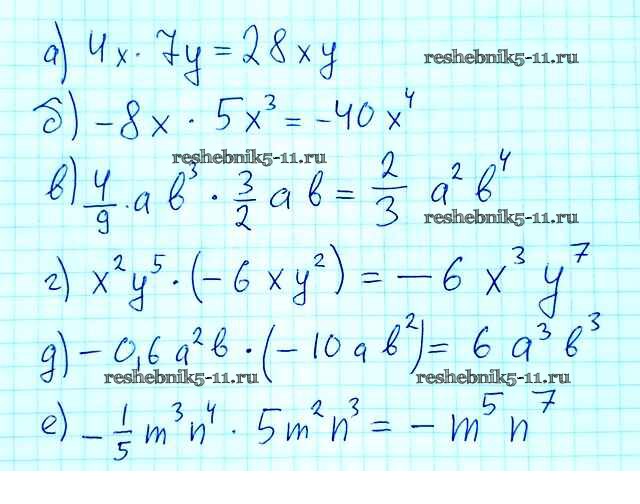 а) 4x · 7y = 28xy
reshebnik5-11.ru
б) -8x · 5x³ = -40x⁴
reshebnik5-11.ru
в) 4/9 · ab³ · 3/2 ab = 2/3 a²b⁴
reshebnik5-11.ru
г) x²y⁵ · (-6xy²) = -6x³y⁷
д) -0,6a²b · (-10ab²) = 6a³b³
reshebnik5-11.ru reshebnik5-11.ru
е) -1/5 m³n⁴ · 5m²n³ = -m⁵n⁷